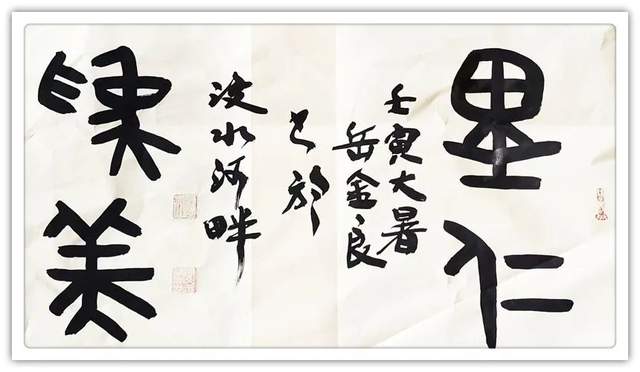 里仁
壬寅大暑
岳金良
书於
水河畔
為美